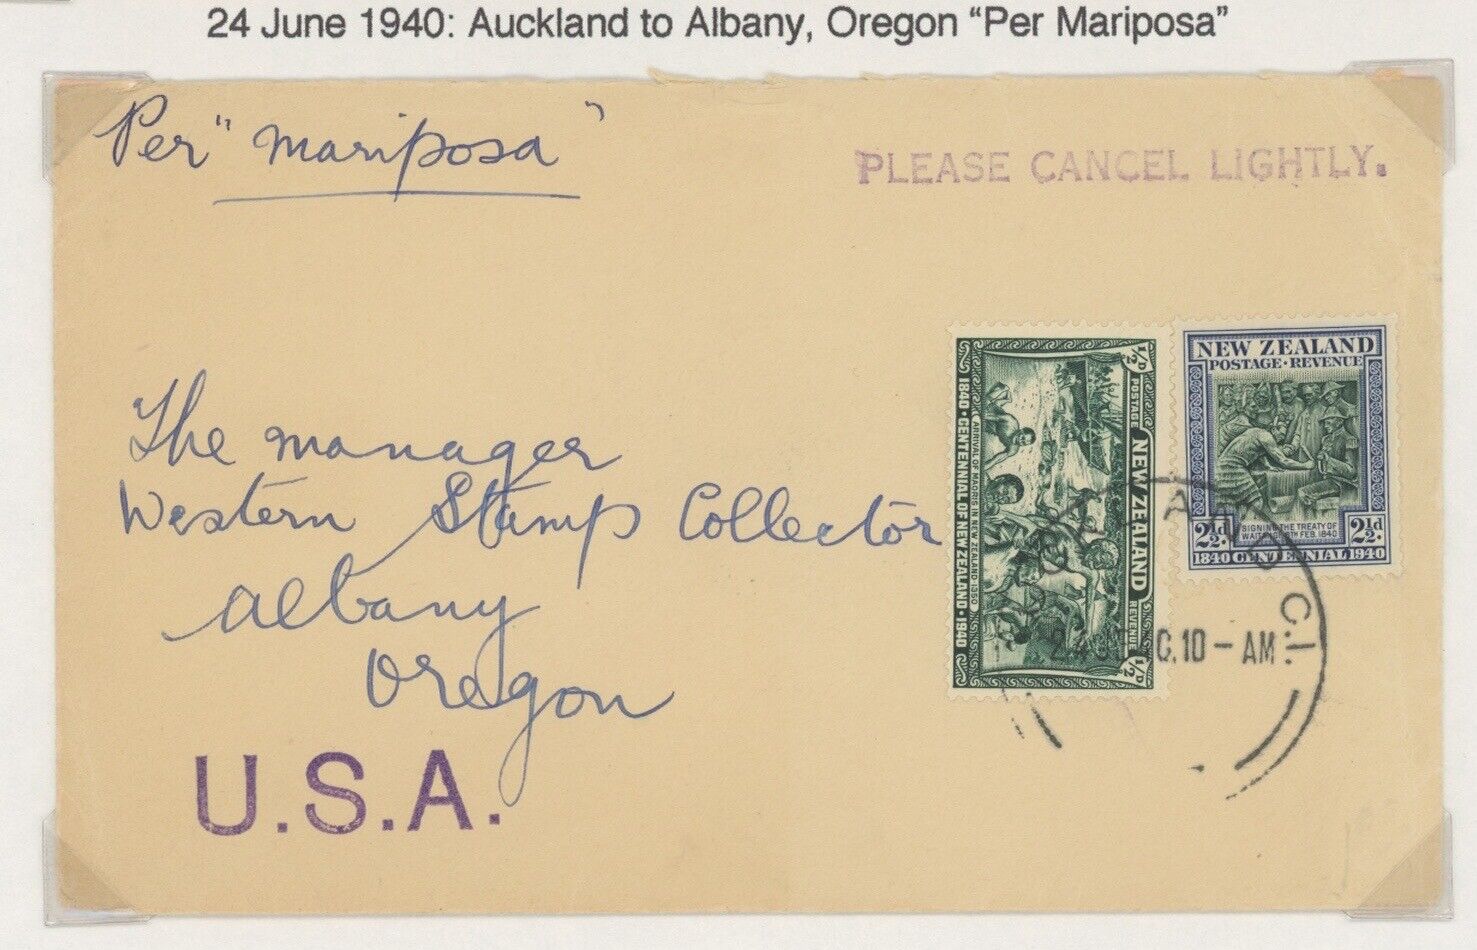 24 June 1940: Auckland to Albany, Oregon “Per Mariposa”
Per "Mariposa"
PLEASE CANCEL LIGHTLY.
The Manager
Western Stamp Collector
Albany
Oregon
U.S.A.
½D POSTAGE NEW ZEALAND REVENUE ½D
ARRIVAL OF MAORIS IN NEW ZEALAND 1350
1840·CENTENNIAL OF NEW ZEALAND·1940
NEW ZEALAND
POSTAGE·REVENUE
2½d. SIGNING THE TREATY OF 2½d.
1840 CENTENNIAL 1940
C.I.
C.10 - AM